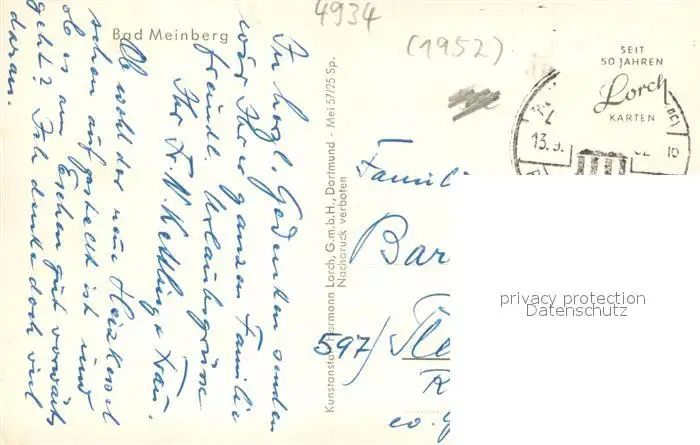 4934
Bad Meinberg
(1952)
SEIT
50 JAHREN
Lorch
KARTEN
13.
In herzl. Gedenken senden
wir Ihrer ganzen Familie
freundl. Urlaubsgrüsse
Ihr Fr. W. Kettling u. Frau.
Ob wohl der neue Heizkessel
schon aufgestellt ist und
ob es am Eschen gut vorwärts
geht? Ich denke doch viel
daran.
Kunstanstalt Hermann Lorch, G.m.b.H., Dortmund - Mei 57/25 Sp.
Nachdruck verboten
Famili
Bar
597/
privacy protection
Datenschutz